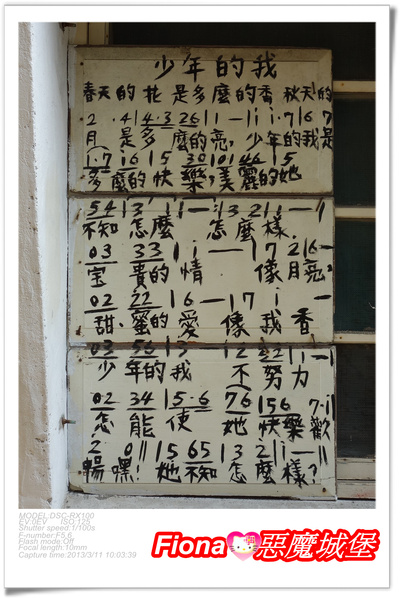 少年的我
春天的花 是多麼的香 秋天的
2 . 4 | 4·3 26 | 1 — | i i · 7 | 6 7
月 是多 麼的亮, 少年的我是
1·7 i6 | 5 30 | 01 46 | 5
多 麼的快 樂,美麗的她
不知 怎麼 怎麼樣
03 33 | i — | 7 2 | 6 —
寶 貴的 情 像 月亮
02 22 | 6 — | 7 i
甜.蜜的愛 像我 香
少 年的我 不 努力
02 34 | 5·6 76 | 56 7·i
怎 能 使 她 快樂 歡
2 0 || 5 65 | 3 2 | i — ||
暢嘿! 她不知 怎麼樣?
MODEL:DSC-RX100
EV:0EV ISO:125
Shutter speed:1/100s
F-number:F5.6
Flash mode:Off
Focal length:10mm
Capture time:2013/3/11 10:03:39
Fiona 惡魔城堡